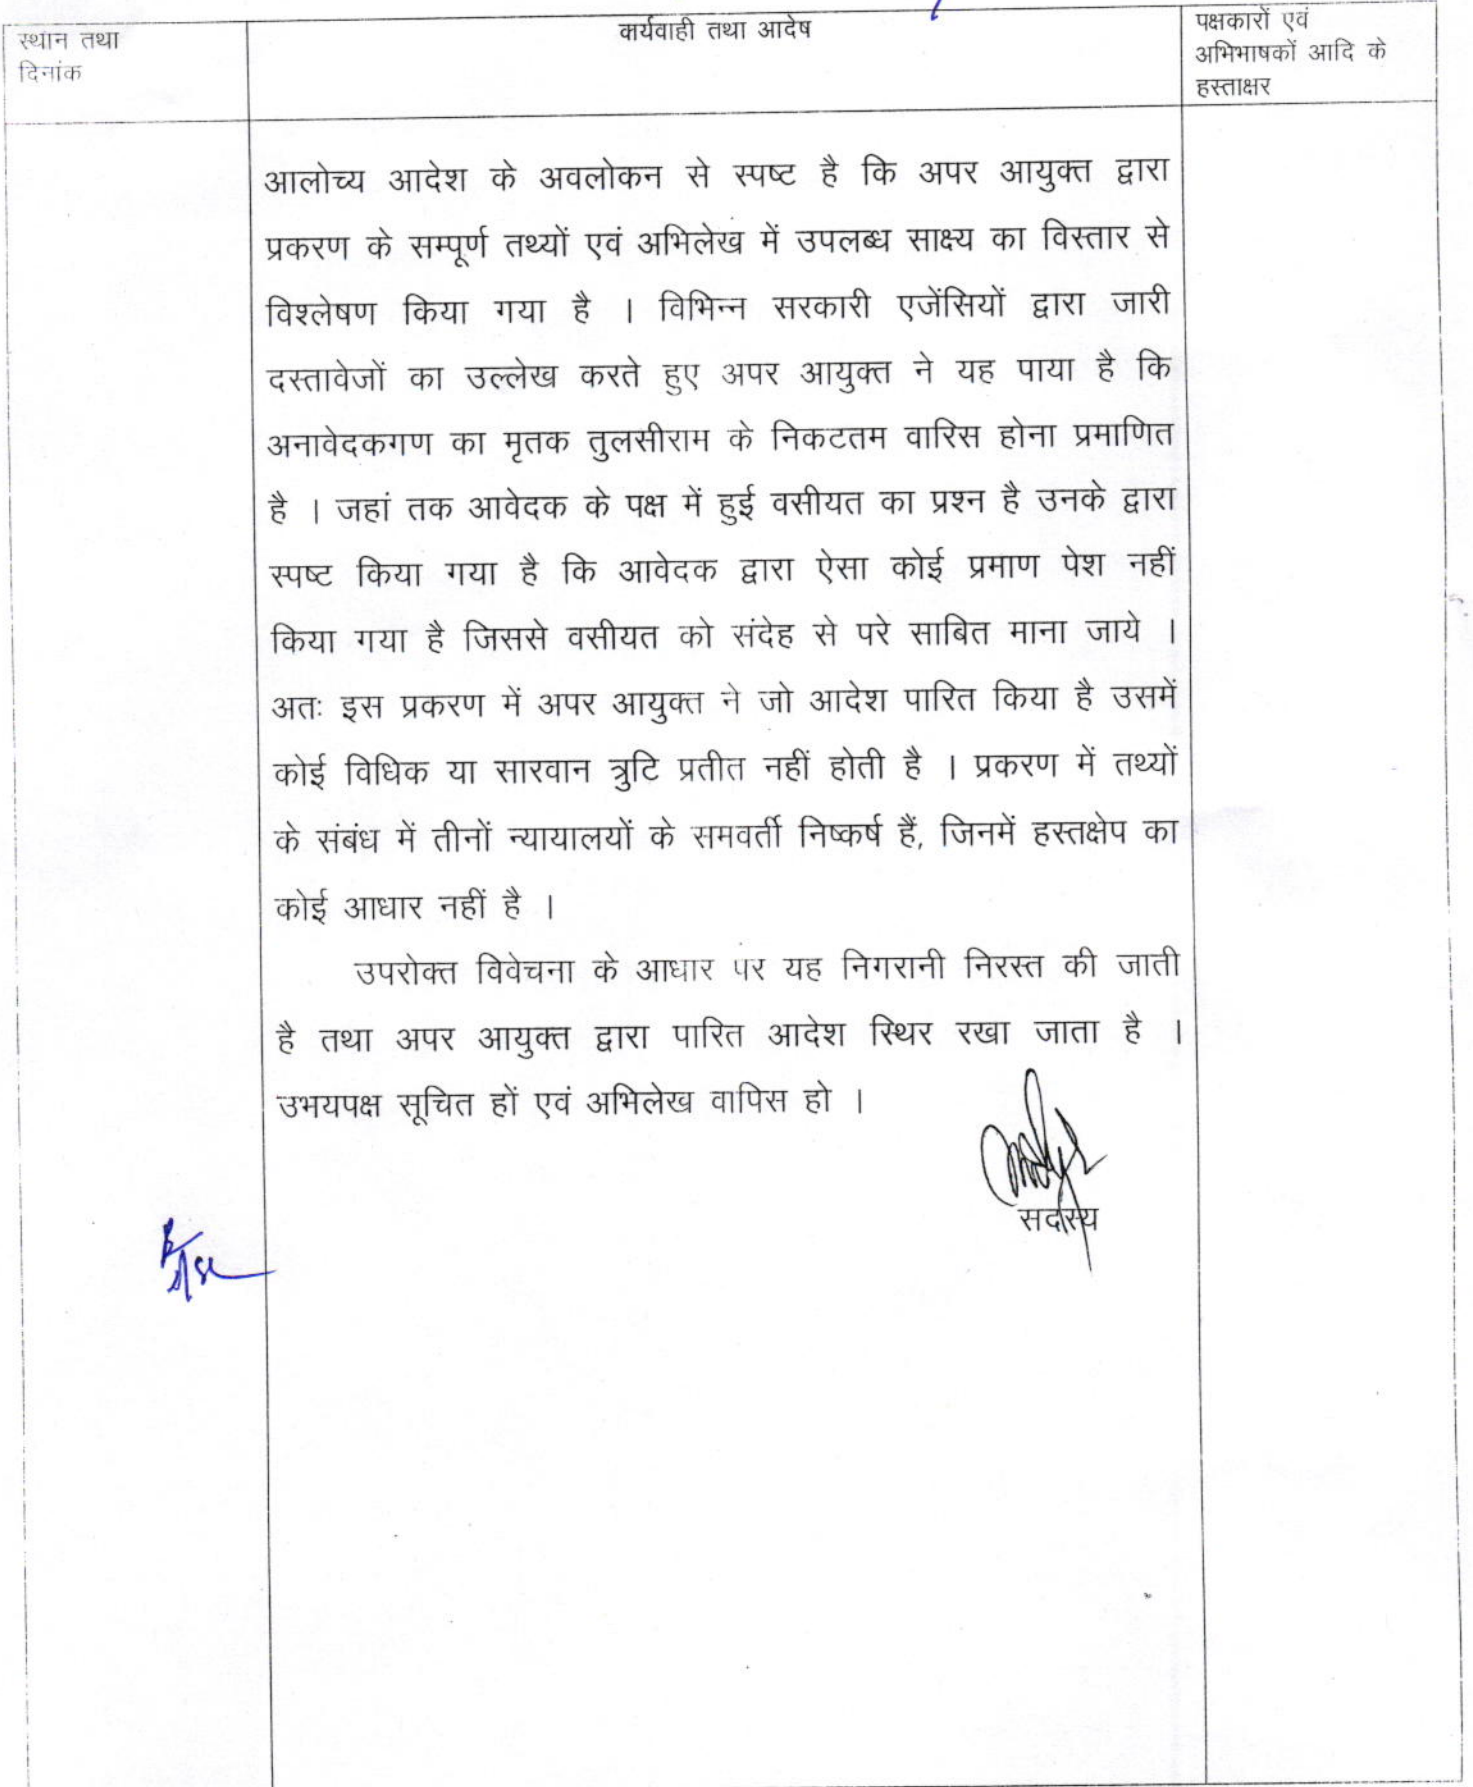 स्थान तथा
दिनांक
कार्यवाही तथा आदेष
पक्षकारों एवं
अभिभाषकों आदि के
हस्ताक्षर
आलोच्य आदेश के अवलोकन से स्पष्ट है कि अपर आयुक्त द्वारा
प्रकरण के सम्पूर्ण तथ्यों एवं अभिलेख में उपलब्ध साक्ष्य का विस्तार से
विश्लेषण किया गया है । विभिन्न सरकारी एजेंसियों द्वारा जारी
दस्तावेजों का उल्लेख करते हुए अपर आयुक्त ने यह पाया है कि
अनावेदकगण का मृतक तुलसीराम के निकटतम वारिस होना प्रमाणित
है । जहां तक आवेदक के पक्ष में हुई वसीयत का प्रश्न है उनके द्वारा
स्पष्ट किया गया है कि आवेदक द्वारा ऐसा कोई प्रमाण पेश नहीं
किया गया है जिससे वसीयत को संदेह से परे साबित माना जाये ।
अतः इस प्रकरण में अपर आयुक्त ने जो आदेश पारित किया है उसमें
कोई विधिक या सारवान त्रुटि प्रतीत नहीं होती है । प्रकरण में तथ्यों
के संबंध में तीनों न्यायालयों के समवर्ती निष्कर्ष हैं, जिनमें हस्तक्षेप का
कोई आधार नहीं है ।
उपरोक्त विवेचना के आधार पर यह निगरानी निरस्त की जाती
है तथा अपर आयुक्त द्वारा पारित आदेश स्थिर रखा जाता है ।
उभयपक्ष सूचित हों एवं अभिलेख वापिस हो ।
सदस्य